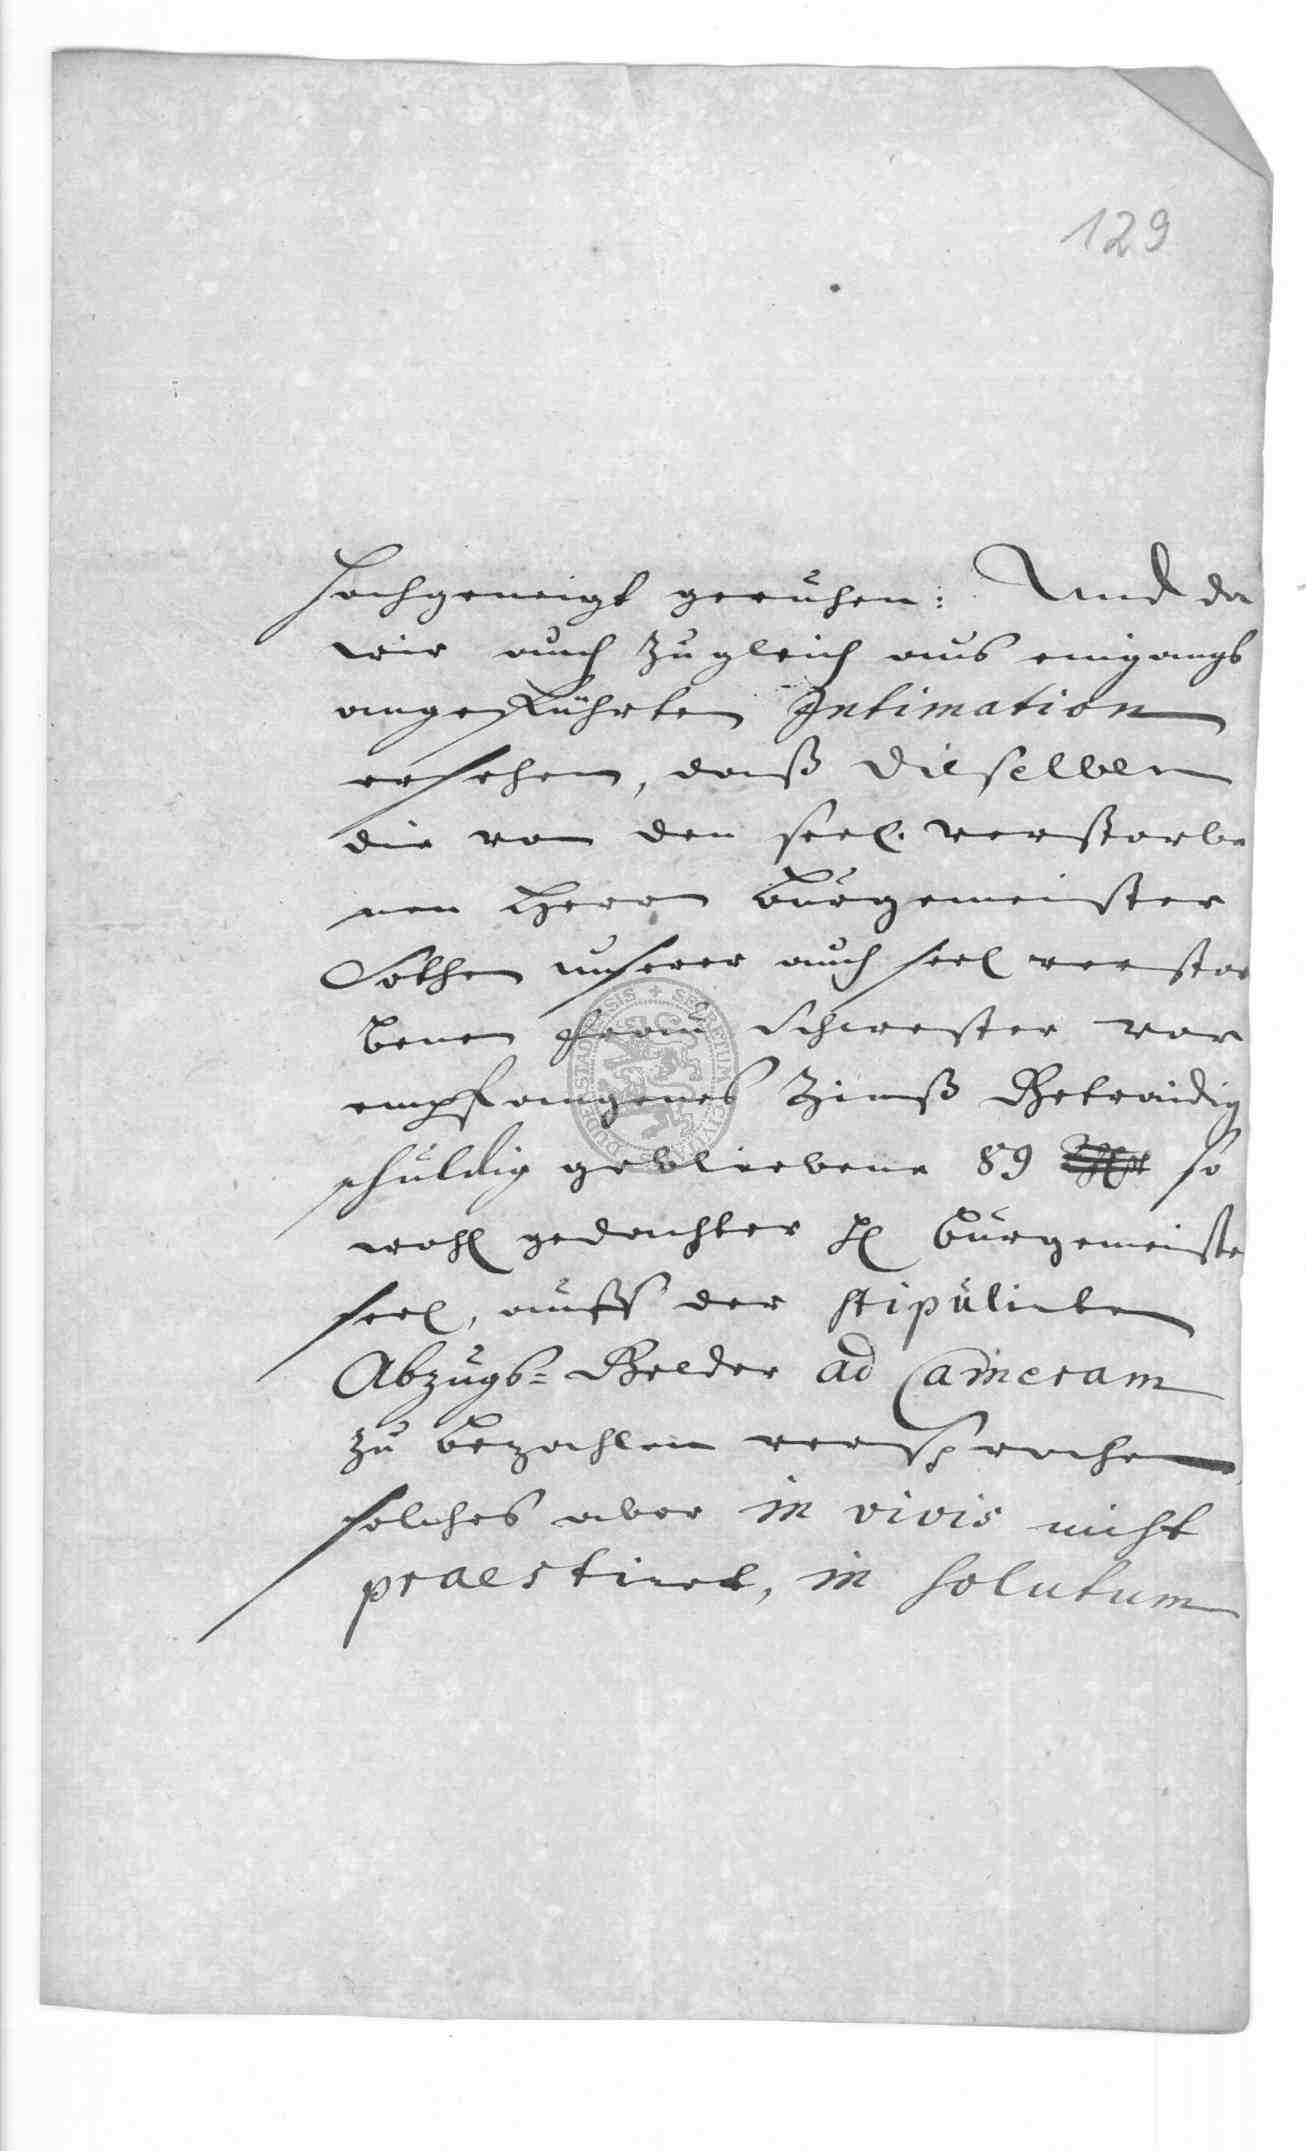 129
hochgeneigt geruhen: Und da
wir auch zugleich aus eingangs
angeführten Intimation
ersehen, daß dieselben
die von den seel. verstorbe
nen Herrn Bürgemeister
Sothen unserer auch seel verstor
benen Frau Schwester vor
empfangenes Zinß Getraidig
schuldig gebliebene 89 so
wohl gedachter H Bürgemeister
seel, auff der stipulirten
Abzugs=Gelder ad Cameram
zu bezahlen versprochen
solches aber in vivis nicht
praestiret, in solutum